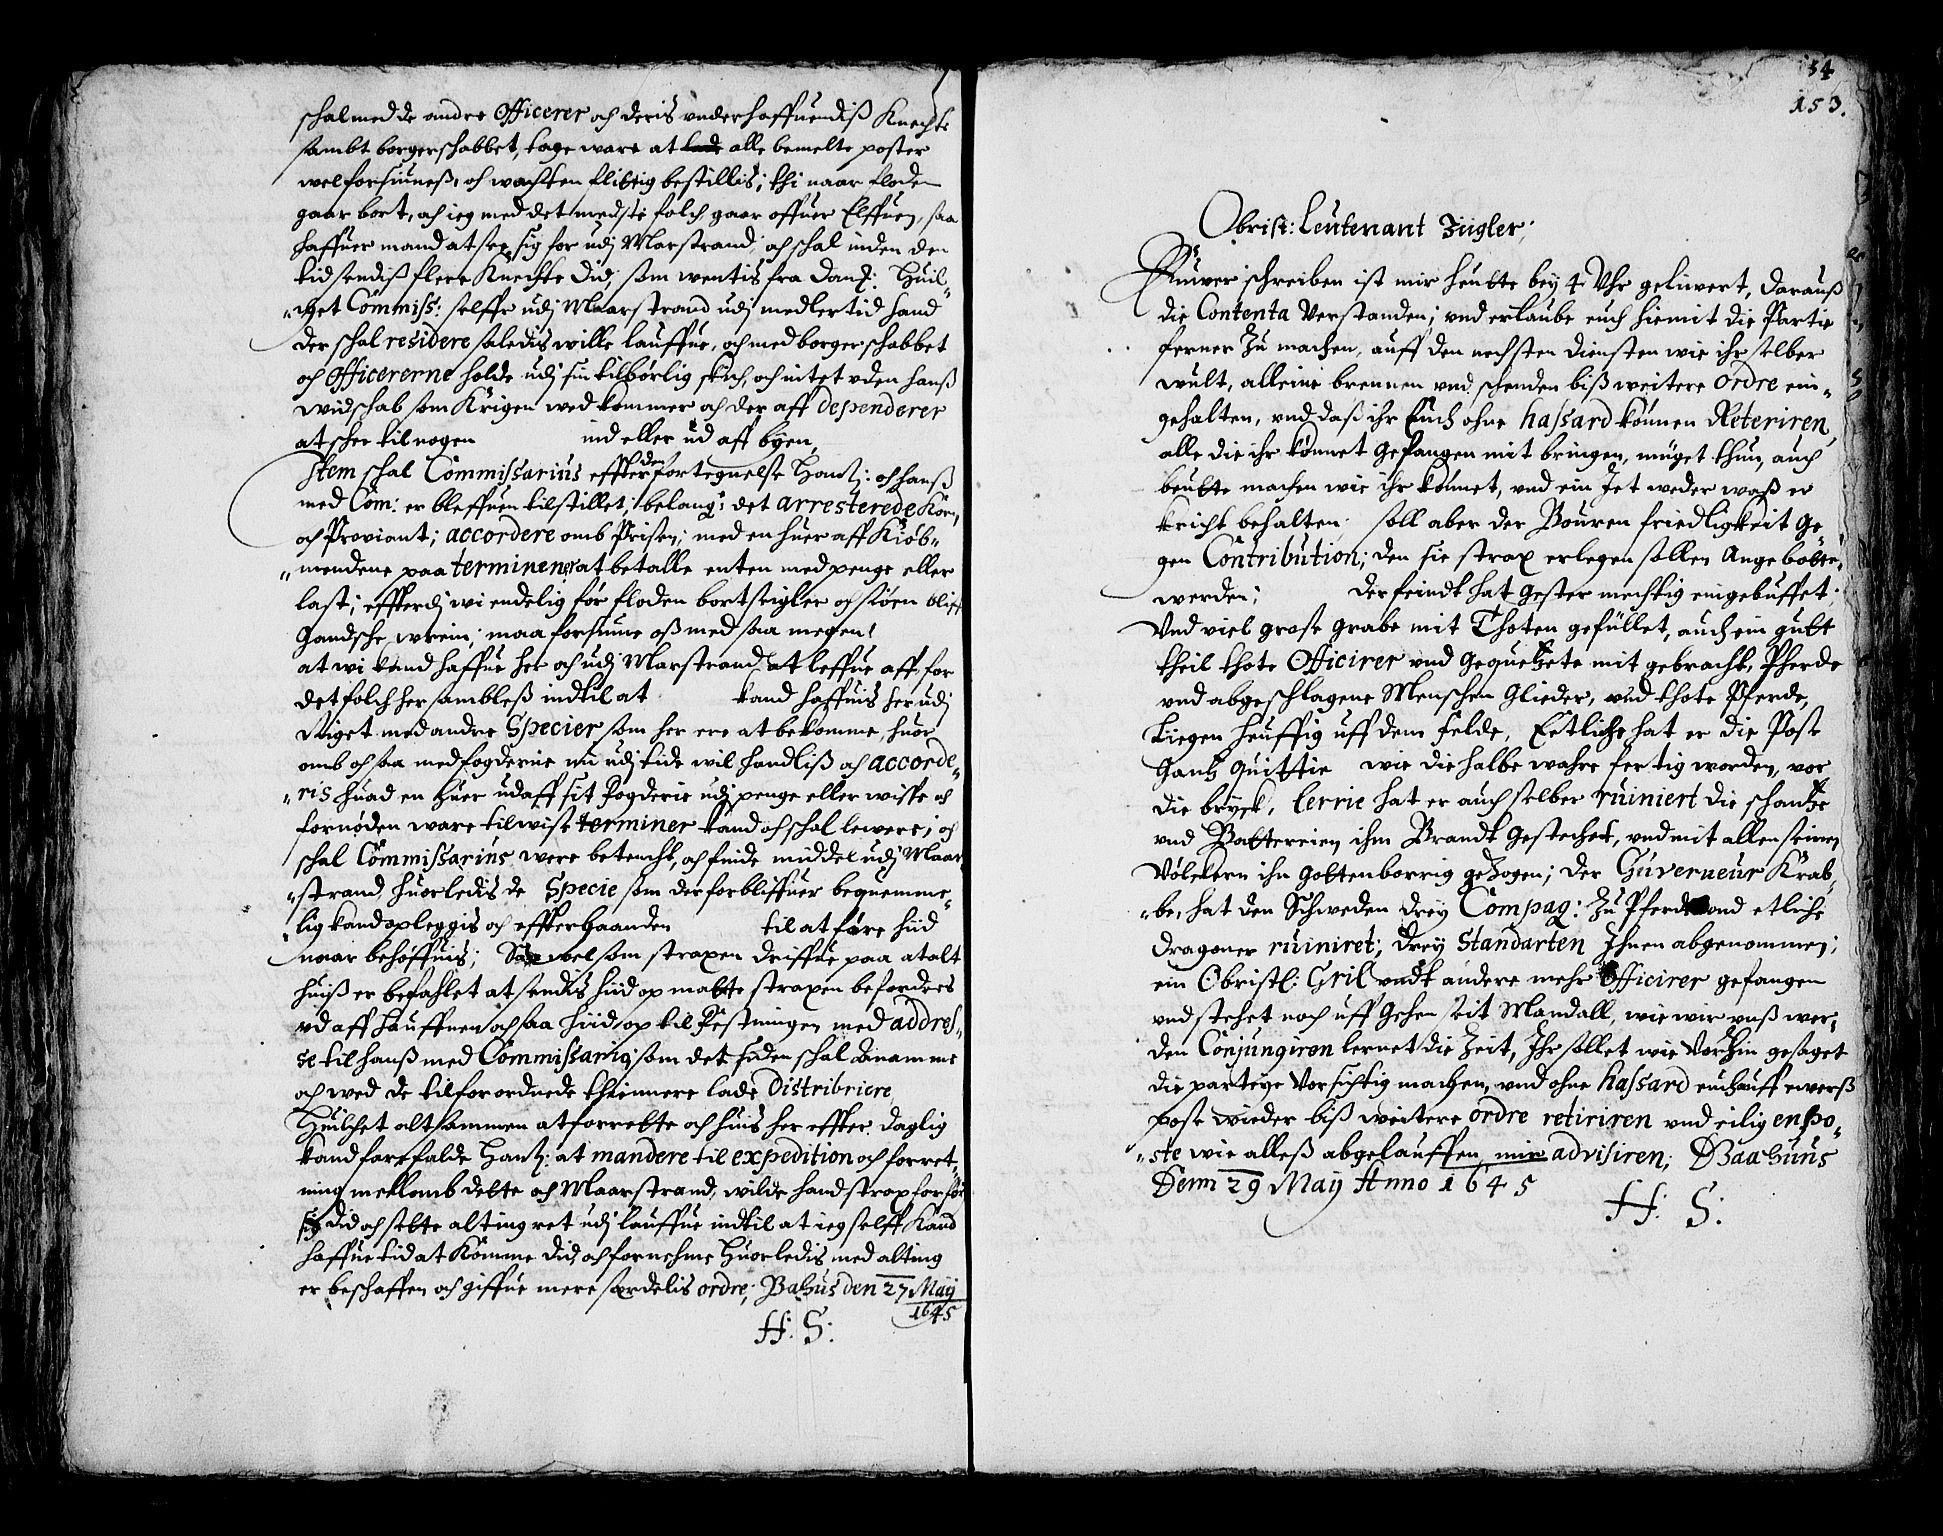 schal med de andre Officerer och deris underhaffuendiß Knechte
sambt borgerschabbet, tage ware at lade alle bemelte poster
wel forsiuneß, och wachten flittig bestillis; thi naar floden
gaar bort, och ieg med det medste folch gaar offuer Elffuen, saa
haffuer mand at see sig for udj Marstrand, och schal inden den
tid sendiß flere Knechte did, som wentis fra Danz: Huil„
„chet Commiss: selffr udj Maarstrand udj medler tid hand
der schal residere saledis wille lauffue, och med borgerschabbet
och Officererne holde udj sin tilbørlig skich, och intet uden hanß
widschab som Krigen wedkommer och der aff dependerer
at schee til nogen ind eller ud aff byen,
Item schal Commissarius effter den fortegnelse Hanz: och hanß
med Com: er bleffuen tilstillet; belang: det arresterede Korn,
och Proviant; accordere omb Prisen; med en huer aff Kiøb„
„mendene paa terminener at betalle enten med penge eller
last; effterdj wi endelig før floden bortseigler och siøen bliff
Gandsche wrein; maa forsiune oß med saa megen!
at wi kand haffue her och udj Marstrand at leffue aff, for
det folch her sambleß indtil at kand haffuis her udj
Riget med andre Specier som her ere at bekomme, huor
omb och saa med fogderne nu udj tide wil handliß och accorde„
„ris huad en huer udaff sit Fogderie udj penge eller wisse och
fornøden ware til wise terminer kand och schal lewere; och
schal Commissarius were betencht, och finde middel udj Maar
„strand huorledis de Specie som der forbliffuer bequemme„
„lig kand opleggis och effter haanden til at føre hiid
naar behøffuis; Saa wel som straxen driffue paa at alt
huiß er befahlet at sendis hiid op matte straxen beforders
ud aff hauffnen och saa hiid op til Festningen med addres„
se til hanß med Commissario, som det siden schal annamme
och wed de tilforordnede thiennere lade Distribriere,
Huilchet altsammen at forrette och huis her effter daglig
kand forefalde Hanz: at mandere til expedition och forret„
ning mellomb dette och Maarstrand, wilde hand strax forføie
sig did och sette alting ret udj lauffue indtil at ieg selff Kand
haffue tid at Komme did, och fornehme huorledis med alting
er beschaffen och giffue mere særdelis ordre; Bahus den 27 Maij
1645
H: S:
54
153.
Obrist: Leutenant Ziigler;
Eüwer schreiben ist mir heutte bey 4 Uhr geliwert, darauß
die Contenta verstanden; und erlaube euch hiemit die Partie
ferner zu machen, auff den nechsten diensten wie ihr selber
wult, alleine brennen und schenden biß weitere ordre ein„
gehalten, und daß ihr Euch ohne hassard können Reteriren,
alle die ihr könnet gefangen mit bringen, müget thun, auch
beutte machen wie ihr könnet, und ein Jet weder waß er
kricht behalten. soll aber der Bouren friedligkeit ge„
gen Contribution; den sie strax erlegen sollen Angebötte„
werden; der feindt hat gester mechtig eingebuffet.
Und viel grose grabe mit Thoten gefüllet, auch ein gutt
theil thote Officirer und gequetzete mit gebracht, Pherde
und abgeschlagene Menschen Glieder, und thote Pferde,
Liegen heuffig uff dem felde, Entliche hat er die Post
Gantz quittie wie die halbe wahre fertig worden, vor
die brÿck, lerrie hat er auch selber ruiniert die schantze
und Battereien ihm Brandt gestechet, und mit allen seinen
Völckern ihn Gottenborrig gezogen; der Guverneur Krab„
„be, hat den Schweden drey Compag: zu Pferd und etliche
dragoner ruiniret; drey Standarten Ihnen abgenommen;
ein Obristl: Gril undt andere mehr Officirer gefangen
und stehet noch uff gehen seit Mandall, wie wir unß wer„
den Conjungiren lernet die Zeit, Ihr sollet wie vorhin gesaget
die parteye vorsichtig machen, und ohne hassard euch auff ewerß
post wieder biß weitere ordre retiriren und eilig enpo„
„ste wie alleß abgelauffen, mir advisiren; Baahuus
Denn 29 Maij Anno 1645
H: S: